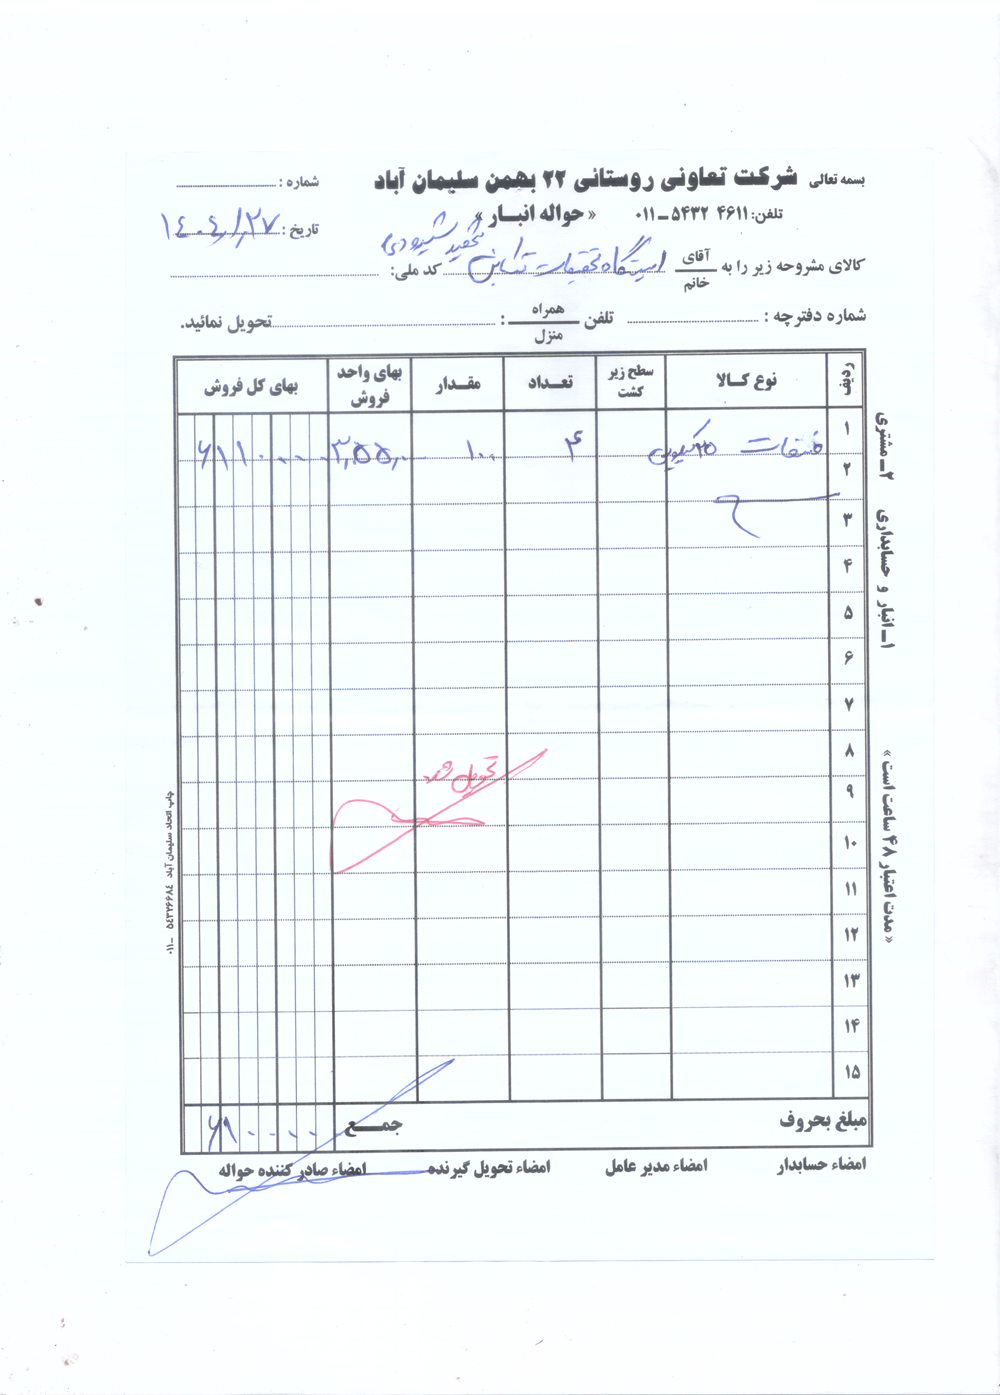 بسمه تعالی شرکت تعاونی روستائی ۲۲ بهمن سلیمان آباد شماره :
تلفن: ۴۶۱۱ ۵۴۳۲ - ۰۱۱ « حواله انبـار » تاریخ : ۱۴۰۴/۱/۲۷
کالای مشروحه زیر را به آقای خانم ایستگاه تحقیقات کد ملی:
شماره دفترچه : تلفن همراه منزل : تحویل نمائید.
ردیف نوع کـالا سطح زیر کشت تعـداد مقـدار بهای واحد فروش بهای کل فروش
۱ ۴ ۱۰۰
۲
۳
۴
۵
۶
۷
۸
تحویل شد
۹
۱۰
۱۱
۱۲
۱۳
۱۴
۱۵
مبلغ بحروف جمـــع
امضاء حسابدار امضاء مدیر عامل امضاء تحویل گیرنده امضاء صادر کننده حواله
۱ـ انبار و حسابداری ۲ـ مشتری
« مدت اعتبار ۴۸ ساعت است »
چاپ اتحاد سلیمان آباد ۵۴۳۲۶۶۸۴ ـ ۰۱۱